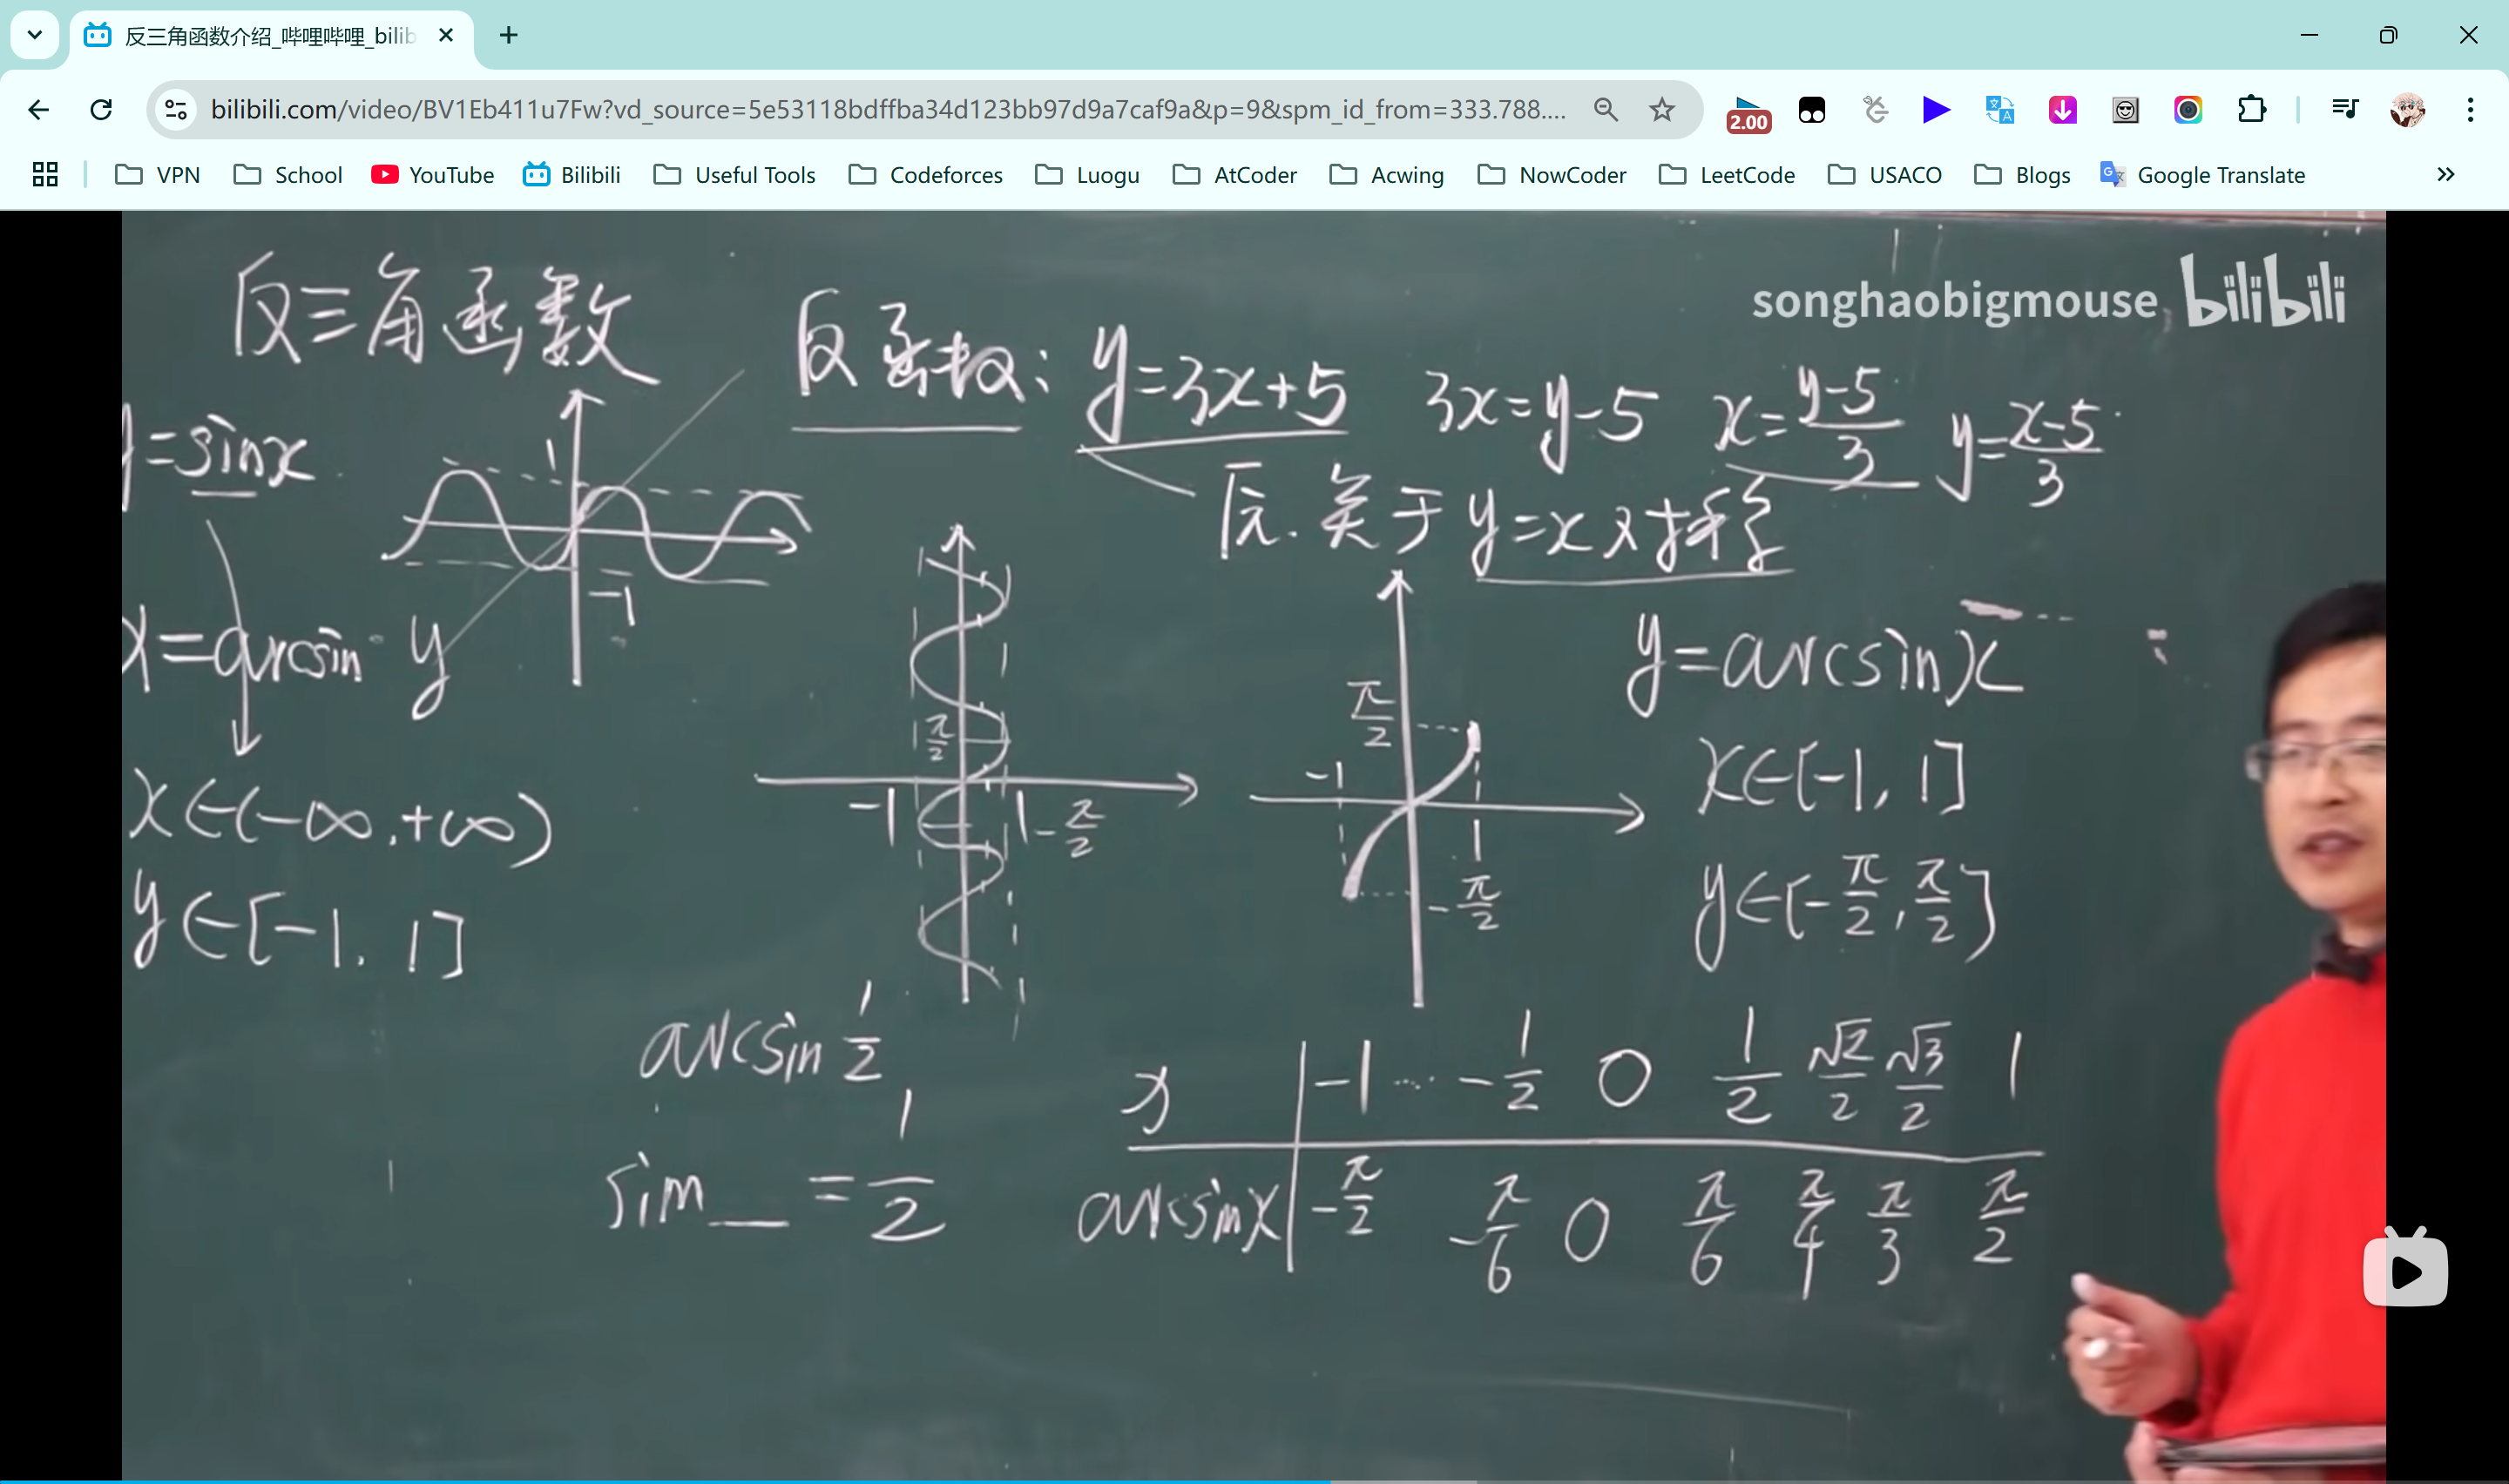 反三角函数介绍_哔哩哔哩_bilib
bilibili.com/video/BV1Eb411u7Fw?vd_source=5e53118bdffba34d123bb97d9a7caf9a&p=9&spm_id_from=333.788....
2.00
VPN School YouTube Bilibili Useful Tools Codeforces Luogu AtCoder Acwing NowCoder LeetCode USACO Blogs Google Translate
songhaobigmouse bilibili
反三角函数
反函数: y=3x+5 3x=y-5 x=\frac{y-5}{3} y=\frac{x-5}{3}
反. 关于 y=x 对称
y=sinx
1
-1
x=arcsin y
x∈(-∞,+∞)
y∈[-1, 1]
\frac{π}{2}
-1 1 -\frac{π}{2}
\frac{π}{2}
-1 1
-\frac{π}{2}
y=arcsinx
x∈[-1, 1]
y∈[-\frac{π}{2}, \frac{π}{2}]
arcsin \frac{1}{2}
sin__ = \frac{1}{2}
x -1 ... -\frac{1}{2} 0 \frac{1}{2} \frac{√2}{2} \frac{√3}{2} 1
arcsinx -\frac{π}{2} -\frac{π}{6} 0 \frac{π}{6} \frac{π}{4} \frac{π}{3} \frac{π}{2}